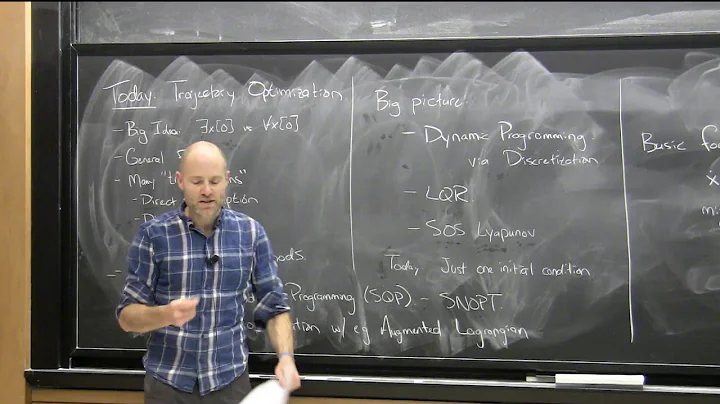 Today: Trajectory Optimization
- Big Idea: ∃x[0] vs ∀x[0]
- General
- Many "
- Direct
ods.
Programming (SQP) - SNOPT.
w/ eg Augmented Lagrangian
Big picture:
- Dynamic Programming
via Discretization
- LQR
- SOS Lyapunov
Today, Just one initial condition
Basic fo
ẋ